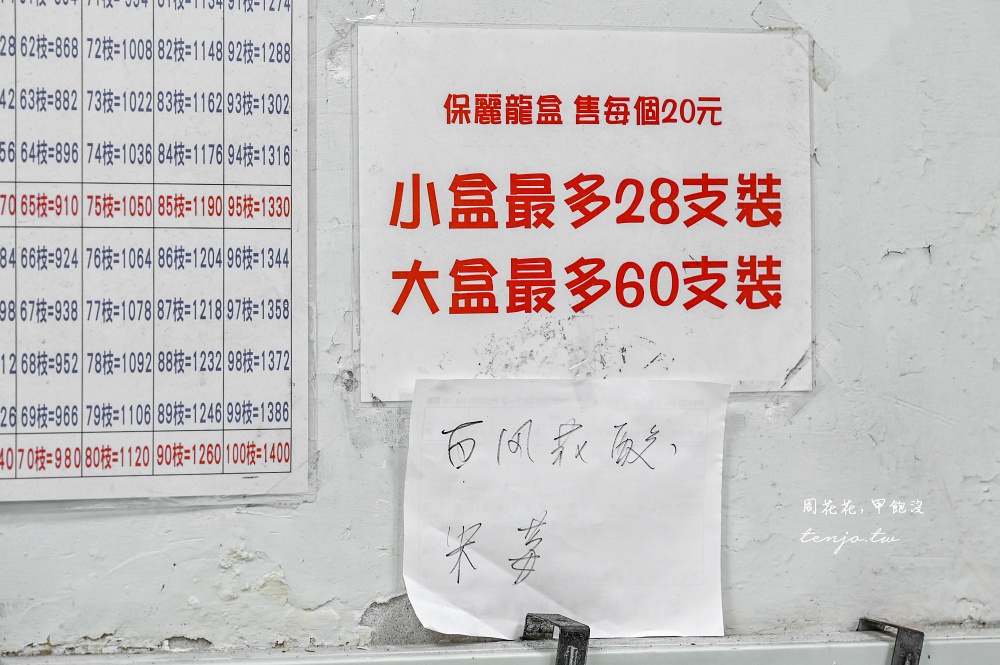 62枝=868 72枝=1008 82枝=1148 92枝=1288
63枝=882 73枝=1022 83枝=1162 93枝=1302
64枝=896 74枝=1036 84枝=1176 94枝=1316
65枝=910 75枝=1050 85枝=1190 95枝=1330
66枝=924 76枝=1064 86枝=1204 96枝=1344
67枝=938 77枝=1078 87枝=1218 97枝=1358
68枝=952 78枝=1092 88枝=1232 98枝=1372
69枝=966 79枝=1106 89枝=1246 99枝=1386
70枝=980 80枝=1120 90枝=1260 100枝=1400
保麗龍盒 售每個20元
小盒最多28支裝
大盒最多60支裝
周花花,甲飽沒
tenjo.tw